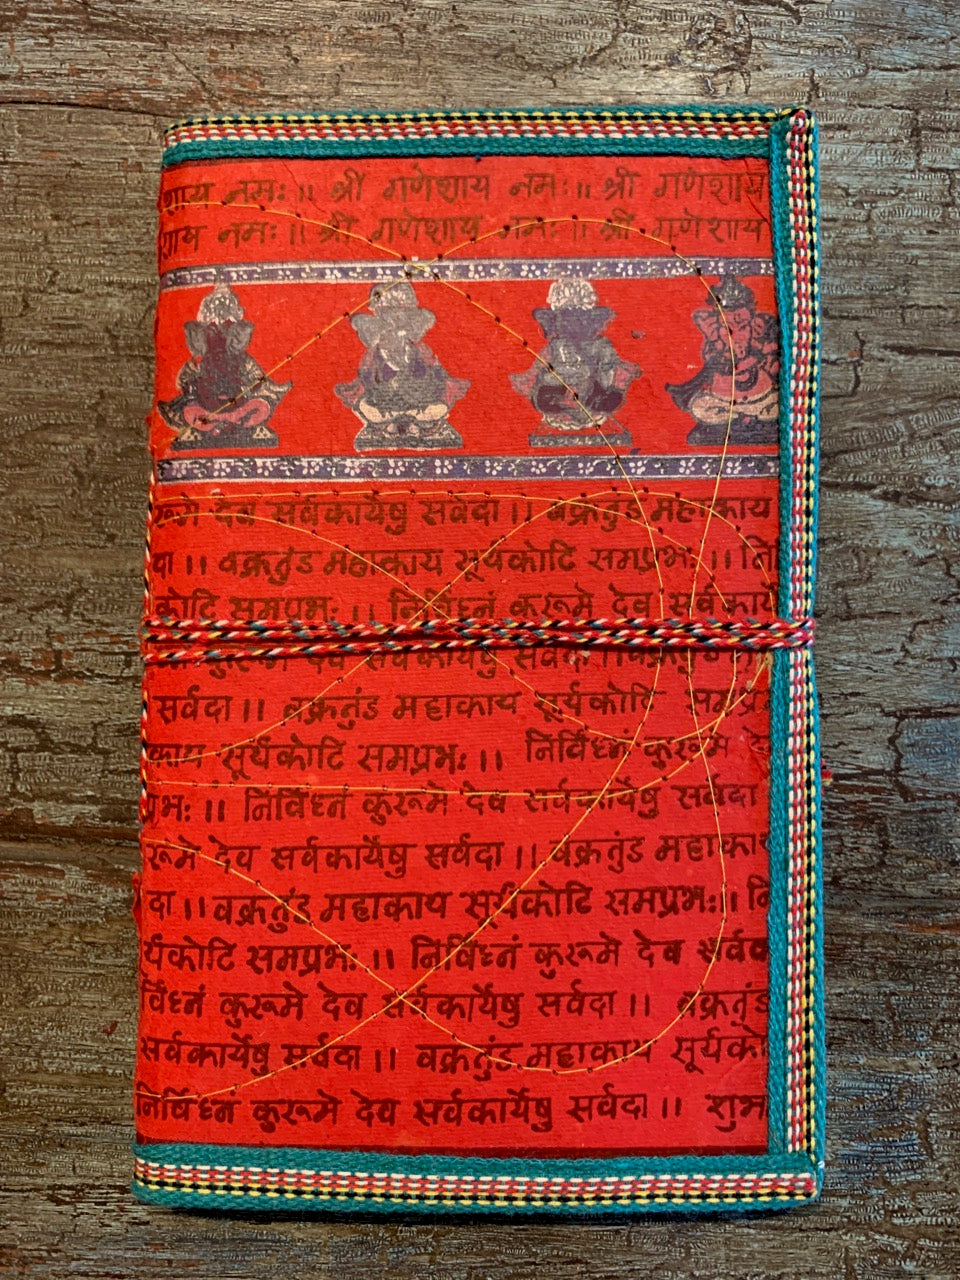 शाय नमः ।। श्री गणेशाय नमः ।। श्री गणेशाय
शाय नमः ।। श्री गणेशाय नमः ।। श्री गणेशाय
रूमे देव सर्वकार्येषु सर्वदा ।। वक्रतुंड महाकाय
दा ।। वक्रतुंड महाकाय सूर्यकोटि समप्रभः ।। नि
कोटि समप्रभः ।। निर्विघ्नं कुरूमे देव सर्वकार्ये
कुरूमे देव सर्वकार्येषु सर्वदा
सर्वदा ।। वक्रतुंड महाकाय सूर्यकोटि समप्रभ
काय सूर्यकोटि समप्रभः ।। निर्विघ्नं कुरूमे दे
प्रभः ।। निर्विघ्नं कुरूमे देव सर्वकार्येषु सर्वदा
रूमे देव सर्वकार्येषु सर्वदा ।। वक्रतुंड महाका
दा ।। वक्रतुंड महाकाय सूर्यकोटि समप्रभः ।। नि
र्यकोटि समप्रभः ।। निर्विघ्नं कुरूमे देव सर्वक
र्विघ्नं कुरूमे देव सर्वकार्येषु सर्वदा ।। वक्रतुंड
सर्वकार्येषु सर्वदा ।। वक्रतुंड महाकाय सूर्यको
निर्विघ्नं कुरूमे देव सर्वकार्येषु सर्वदा ।। शुभ